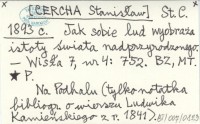 [CERCHA Stanisław] St. C.
1893 c. Jak sobie lud wyobraża
istoty świata nadprzyrodzonego.
— Wisła 7, nr 4: 752. BZ, MT.
★ P.
Na Podhalu (tylko notatka
bibliogr. o wierszu Ludwika
Kamieńskiego z r. 1841).